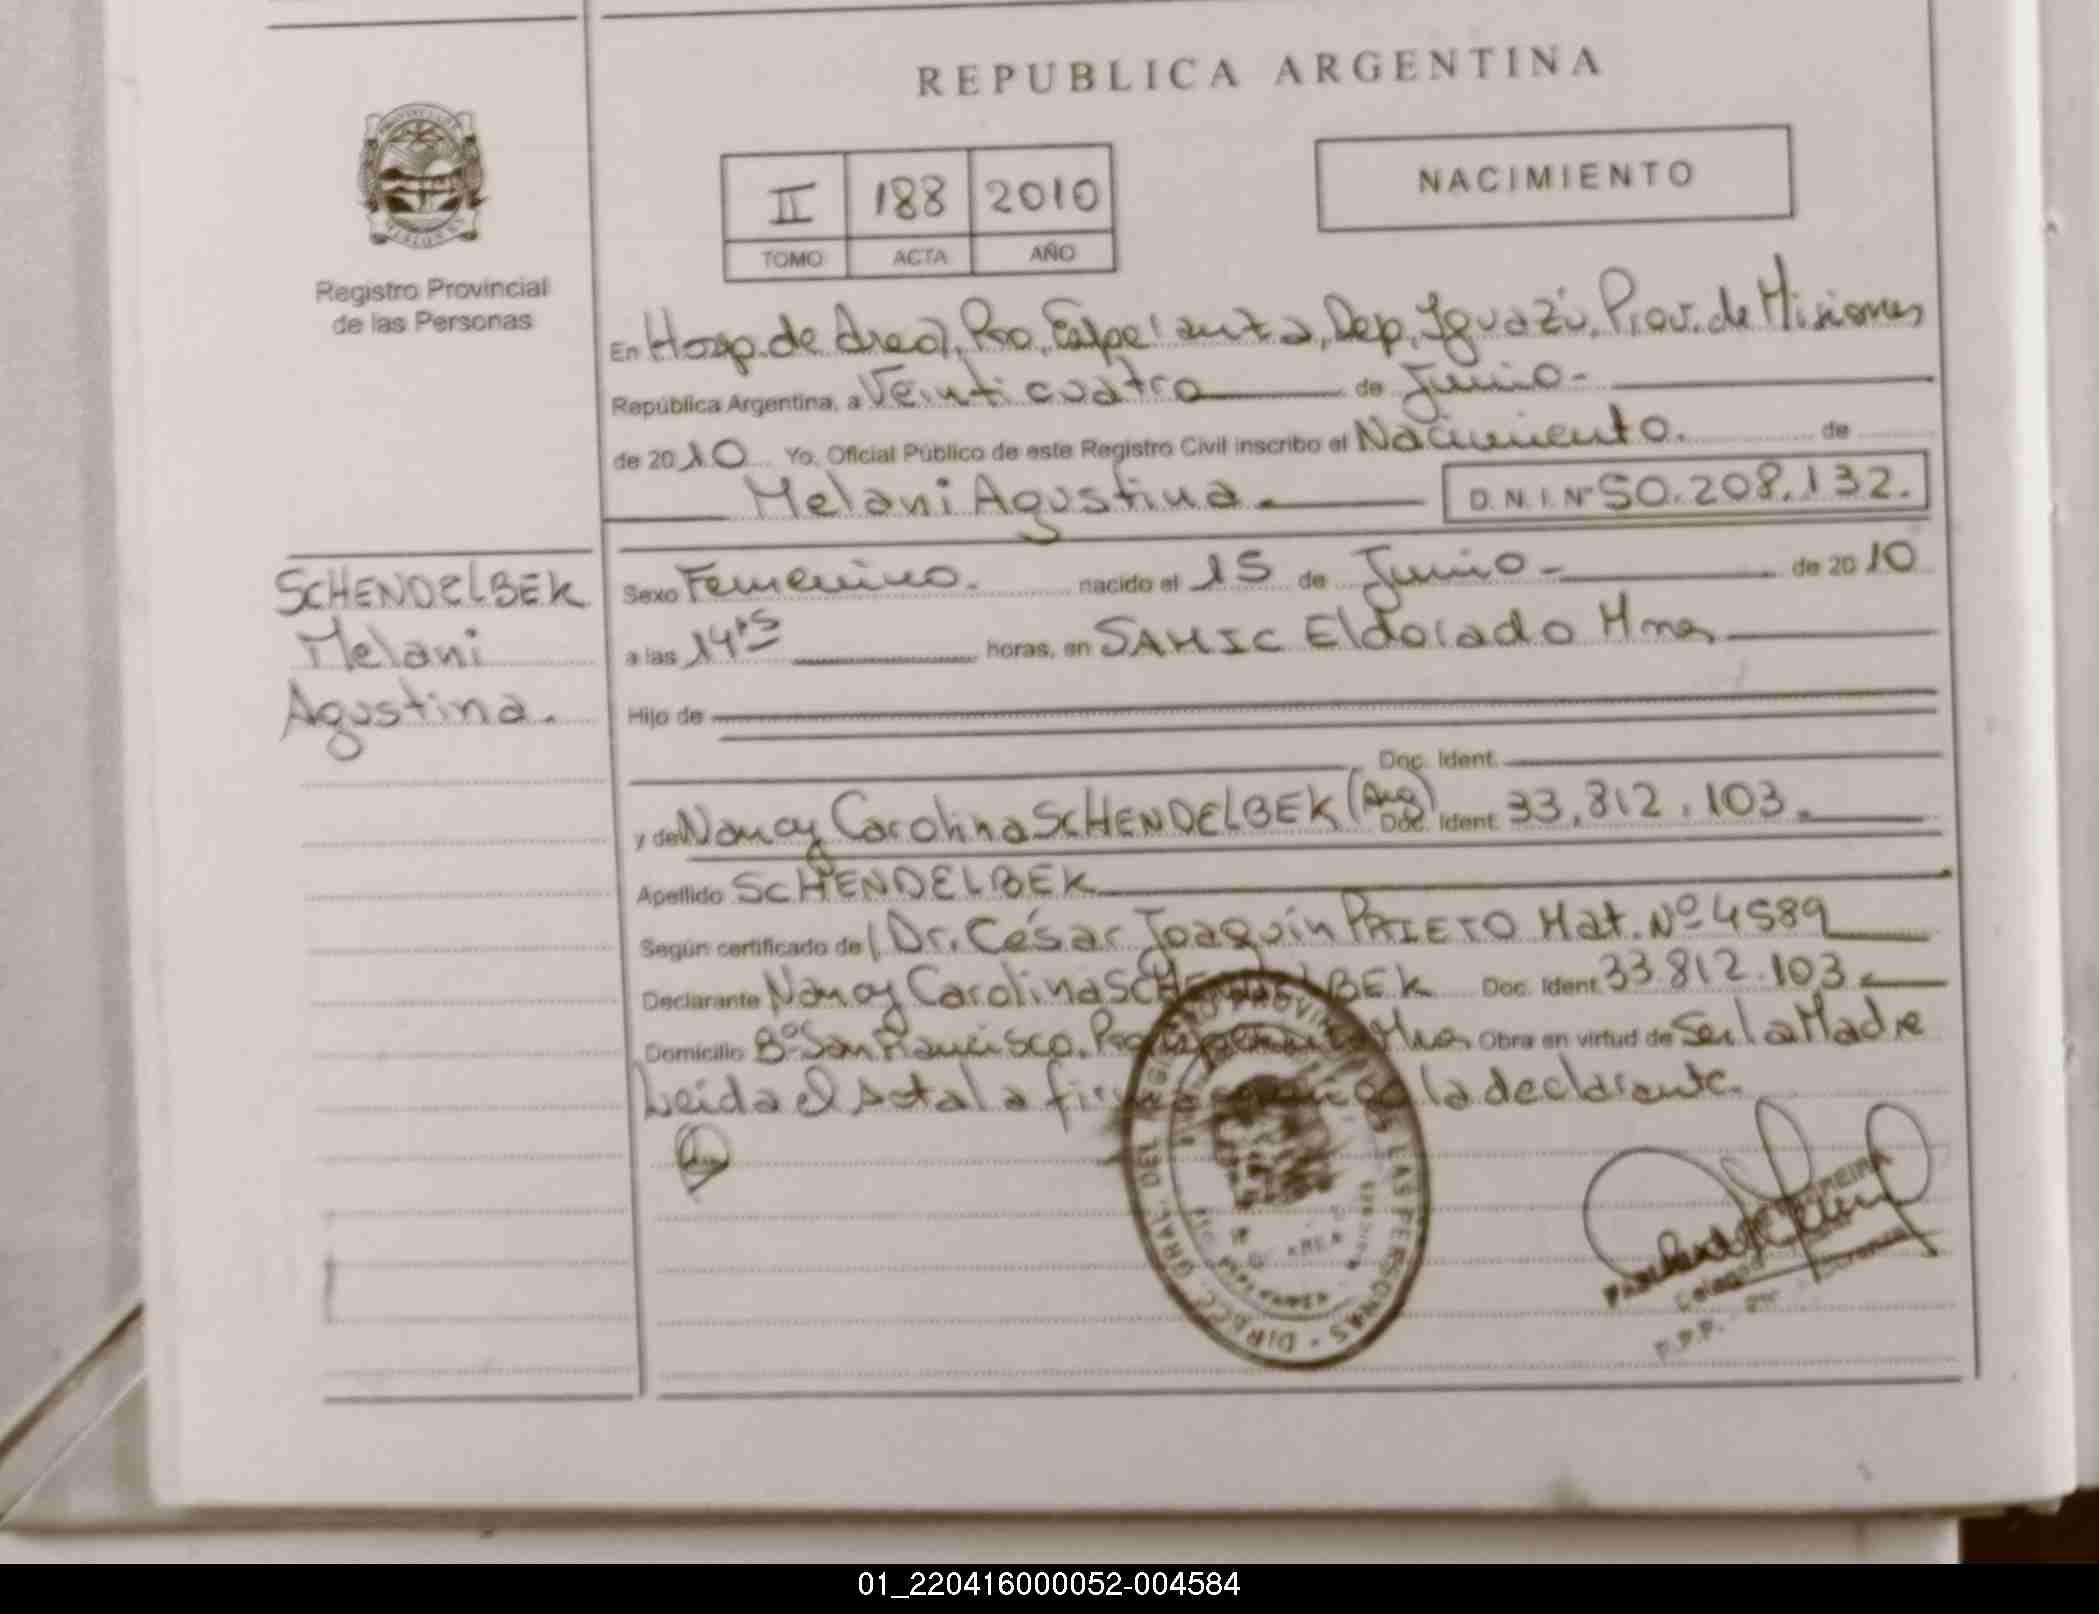 REPUBLICA ARGENTINA
II 188 2010
TOMO ACTA AÑO
NACIMIENTO
Registro Provincial
de las Personas
En Hosp. de Area, Pto. Esperanza, Dep. Iguazú, Prov. de Misiones
República Argentina, a Veinticuatro de Junio.-
de 2010 Yo, Oficial Público de este Registro Civil inscribo el Nacimiento. de
Melani Agustina. D.N.I. Nº 50.208.132.
SCHENDELBEK
Melani
Agustina.
Sexo Femenino. nacido el 15 de Junio.- de 2010
a las 14hs horas, en SAMIC Eldorado Mnes
Hijo de
Doc. Ident.
y de Nancy Carolina SCHENDELBEK (Arg) Doc. Ident. 33.812.103.
Apellido SCHENDELBEK
Según certificado de Dr. César Joaquín PRIETO Mat. Nº 4589
Declarante Nancy Carolina SCHENDELBEK Doc. Ident. 33.812.103.
Domicilio Bº San Francisco, Pto Esperanza Mnes Obra en virtud de Ser la Madre
Leida el acta la firma la declarante.
DIRECC. GRAL. DEL REGISTRO PROVINCIAL DE LAS PERSONAS
01_220416000052-004584